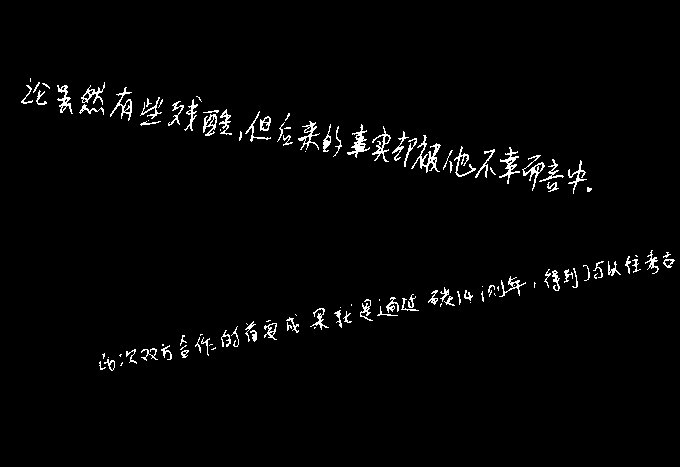 论虽然有些残酷,但后来的事实却被他不幸而言中.
此次双方合作的首要成果就是通过碳14测年,得到了与以往考古